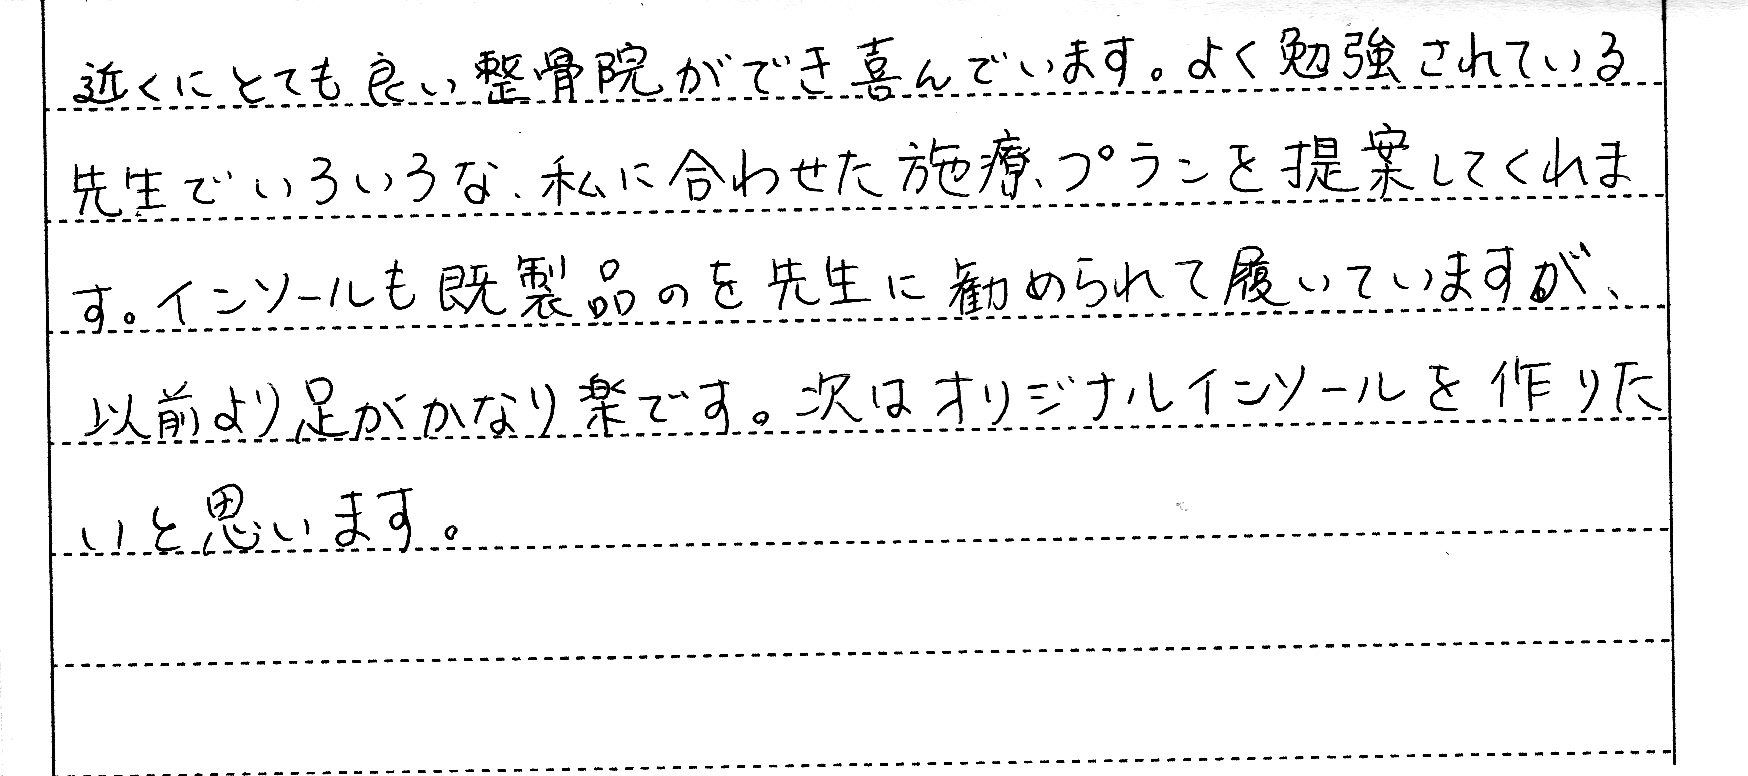 近くにとても良い整骨院ができ喜んでいます。よく勉強されている
先生でいろいろな、私に合わせた施療、プランを提案してくれま
す。インソールも既製品のを先生に勧められて履いていますが、
以前より足がかなり楽です。次はオリジナルインソールを作りた
いと思います。